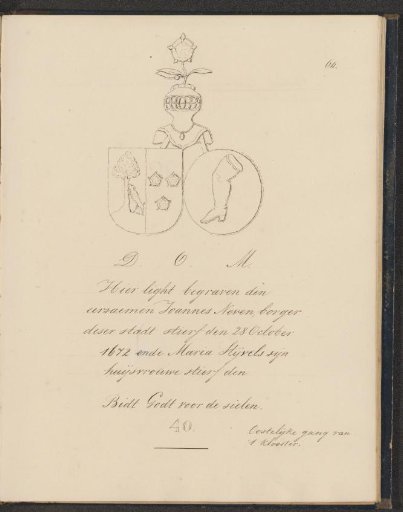 60.
D. O. M.
Hier light begraven den
eersaemen Joannes Neven, borger
deser stadt sterf den 28 October
1672 ende Marea Stijvels syn
huijsvrouwe sterf den
Bidt Godt voor de sielen.
40.
Oostelijke gang van
't klooster.